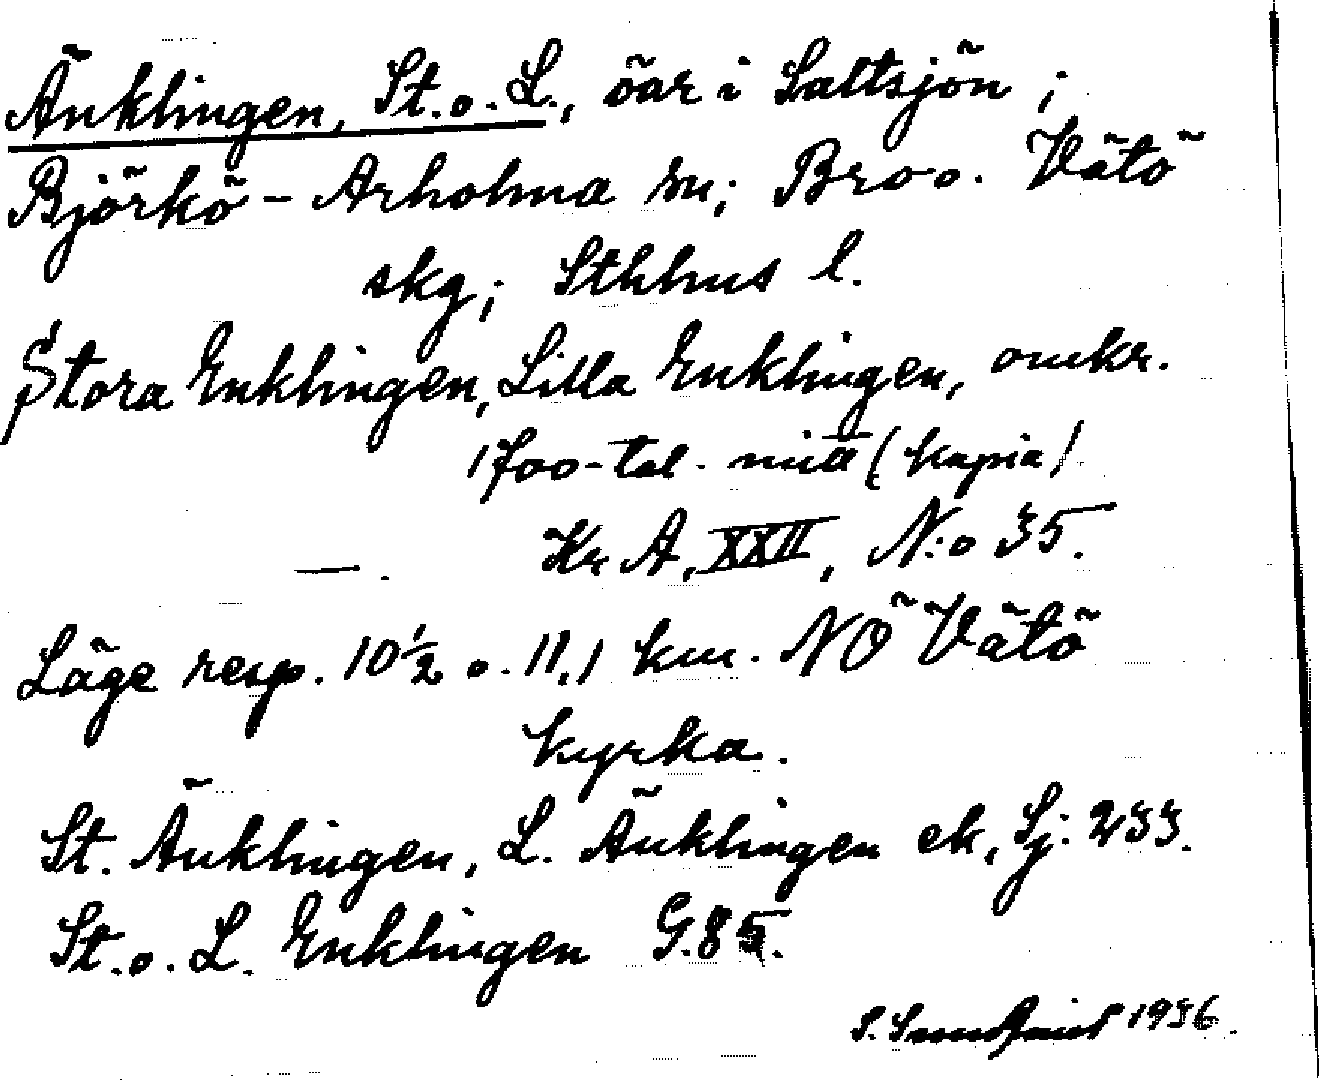 Änklingen, St. o. L., öar i Saltsjön;
Björkö - Arholma sn; Bro o. Vätö
skg; Sthlms l.
Stora Enklingen, Lilla Enklingen, omkr.
1700-tal. mitt (kopia)
Kr A, XXII, N:o 35.
— .
Läge resp. 10½ o. 11,1 km. NÖ Vätö
kyrka.
St. Änklingen, L. Änklingen ek, Sj: 233.
St. o. L. Enklingen G. 85.
S. 1936.